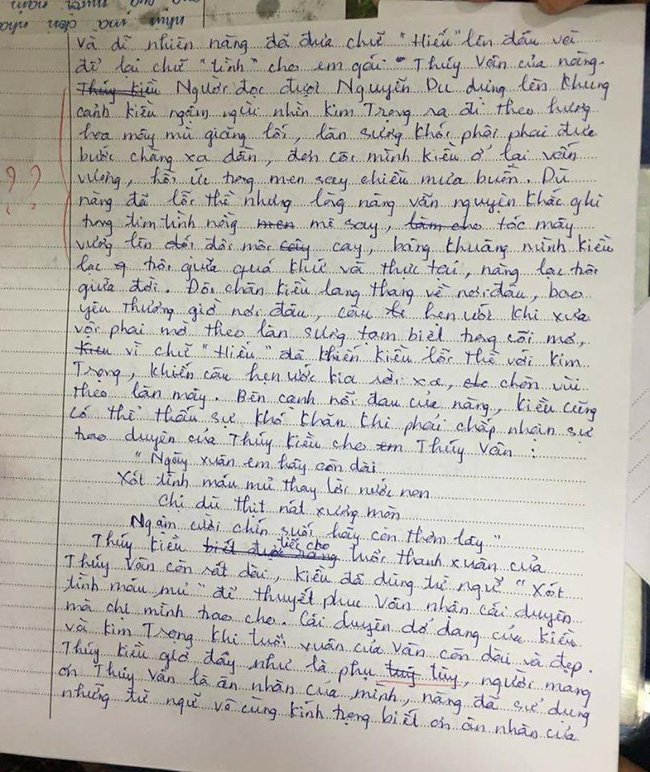 và dĩ nhiên nàng đã đưa chữ "Hiếu" lên đầu và
để lại chữ "tình" cho em gái Thúy Vân của nàng.
Thúy Kiều Người đọc được Nguyễn Du dựng lên khung
cảnh Kiều ngậm ngùi nhìn Kim Trọng ra đi theo hương
hoa mây mù giăng lối, làn sương khói phôi phai đưa
bước chàng xa dần, đơn côi mình Kiều ở lại vấn
vương, hồi ức trong men say chiều mưa buồn. Dù
nàng đã lỗi thề nhưng lòng nàng vẫn nguyên khắc ghi
trong tim tình nồng men mê say, làm cho tóc mây
vương lên đôi đôi môi cay cay, bâng khuâng mình Kiều
lạc trôi giữa quá khứ và thực tại, nàng lạc trôi
giữa đời. Đôi chân Kiều lang thang về nơi đâu, bao
yêu thương giờ nơi đâu, câu hẹn ước khi xưa
vội phai mờ theo làn sương tam biệt trong cõi mơ,
Kiều vì chữ "Hiếu" đã khiến Kiều lỗi thề với Kim
Trọng, khiến câu hẹn ước kia rời xa, chôn vùi
theo làn mây. Bên cạnh nỗi đau của nàng, Kiều cũng
có thể thấu sự khó khăn khi phải chấp nhận sự
trao duyên của Thúy Kiều cho em Thúy Vân :
"Ngày xuân em hãy còn dài
Xót tình máu mủ thay lời nước non
Chị dù thịt nát xương mòn
Ngậm cười chín suối hãy còn thơm lây"
Thúy Kiều biết được rằng tiếc cho tuổi thanh xuân của
Thúy Vân còn rất dài, Kiều đã dùng từ ngữ "Xót
tình máu mủ" để thuyết phục Vân nhận cái duyên
mà chị mình trao cho. Cái duyên dở dang của Kiều
và Kim Trọng khi tuổi xuân của Vân còn dài và đẹp.
Thúy Kiều giờ đây như là phụ tuỳ tùy, người mang
ơn Thúy Vân là ân nhân của mình, nàng đã sử dụng
những từ ngữ vô cùng kính trọng biết ơn ân nhân của